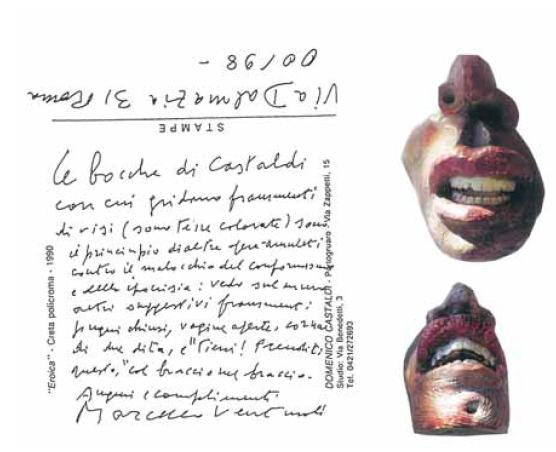 STAMPE
Via Dalmazia 31 Roma
00198 -
Le bocche di Castaldi
con cui gridano frammenti
di visi (sono terre colorate) sono
il principio di altre opere-amuleti
contro il malocchio del conformismo
e della ipocrisia: vedo sul
altri suggestivi frammenti:
pugni chiusi, vagine aperte, corna
di due dita, e "Tieni! Prenditi
questo," col braccio sul braccio.
Auguri e complimenti
Marcello Venturoli
"Eroica" - Creta policroma - 1990
DOMENICO CASTALDI - Portogruaro - Via Zappetti, 15
Studio: Via Benedetti, 3
Tel. 0421/272693